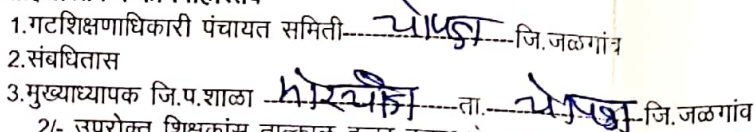 1.गटशिक्षणाधिकारी पंचायत समिती-----चोपडा-----जि.जळगांव
2.संबधितास
3.मुख्याध्यापक जि.प.शाळा -----------ता.---चोपडा--जि.जळगांव
2/- उपरोक्त शिक्षकांस तात्काळ